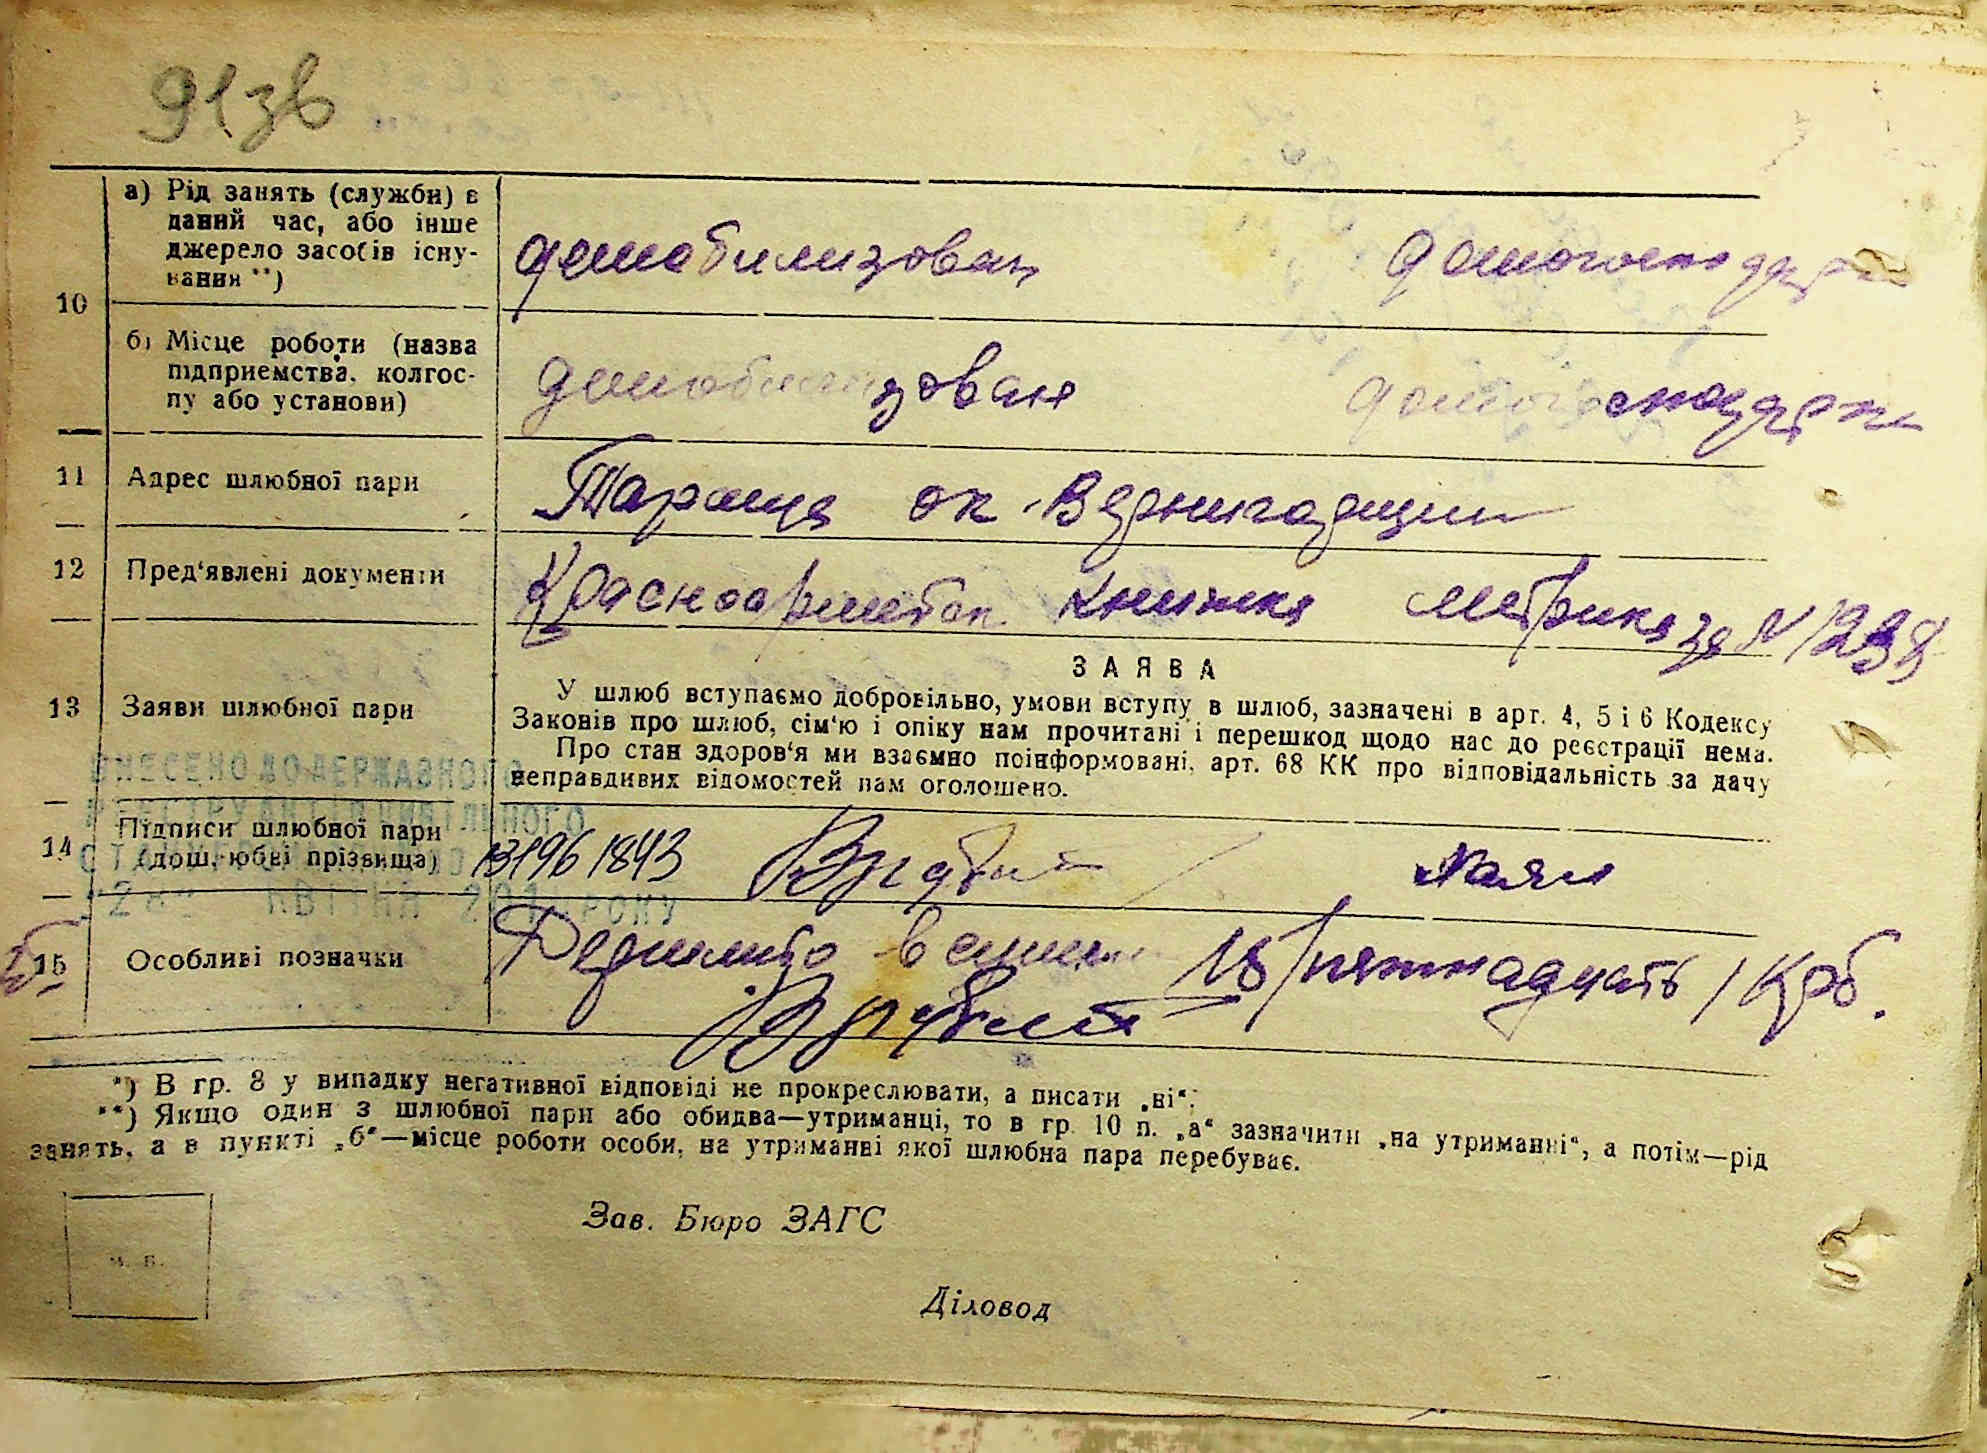 91зв
а) Рід занять (служби) в
даний час, або інше
джерело засобів існу-
вання **)
демобилизован домогосподарка
10
б) Місце роботи (назва
підприємства, колгос-
пу або установи)
демобилизован домогосподарка
11 Адрес шлюбної пари Тараща ок.
12 Пред'явлені документи Красноармейск книжка метрика за N 1238
ЗАЯВА
13 Заяви шлюбної пари
У шлюб вступаємо добровільно, умови вступу в шлюб, зазначені в арт. 4, 5 і 6 Кодексу
Законів про шлюб, сім'ю і опіку нам прочитані і перешкод щодо нас до реєстрації нема.
Про стан здоров'я ми взаємно поінформовані, арт. 68 КК про відповідальність за дачу
неправдивих відомостей нам оголошено.
ВНЕСЕНО ДО ДЕРЖАВНОГО
РЕЄСТРУ АКТІВ ЦИВІЛЬНОГО
14 Підписи шлюбної пари
(дошлюбні прізвища) 131961843
КВІТНЯ 201 РОКУ
15 Особливі позначки в сумме 15 /пятнадцать/ крб.
*) В гр. 8 у випадку негативної відповіді не прокреслювати, а писати „ні“.
**) Якщо один з шлюбної пари або обидва—утриманці, то в гр. 10 п. „а“ зазначити „на утриманні“, а потім—рід
занять, а в пункті „б“—місце роботи особи, на утриманні якої шлюбна пара перебуває.
Зав. Бюро ЗАГС
м. п.
Діловод